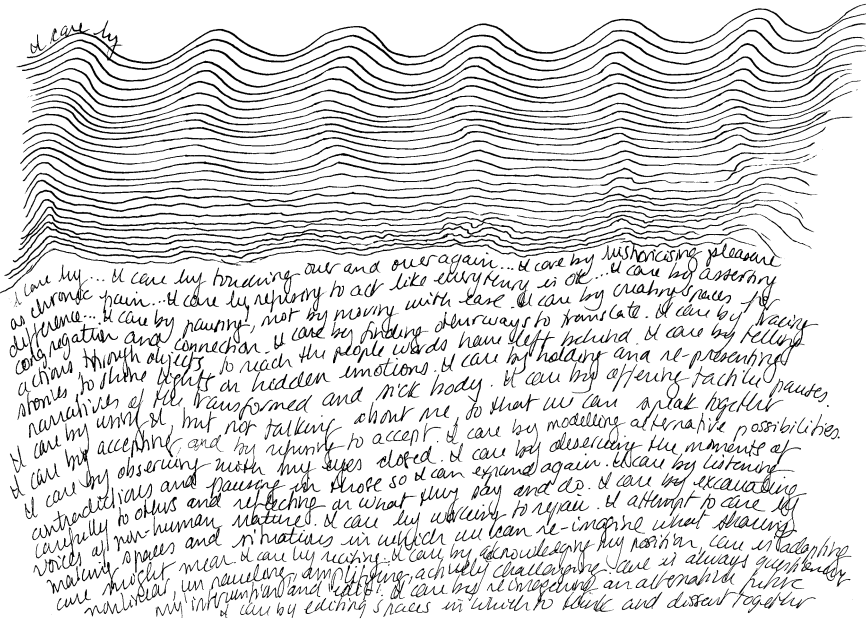 I care by
I care by... I care by touching over and over again... I care by historicising pleasure
as chronic pain... I care by refusing to act like everything is OK... I care by asserting
difference... I care by pausing, not by moving with ease. I care by creating spaces for
congregation and connection. I care by finding other ways to translate. I care by tracing
actions through objects, to reach the people words have left behind. I care by telling
stories, to shine lights on hidden emotions. I care by holding and re-presenting
narratives of the transformed and sick body. I care by offering tactile pauses.
I care by using I, but not talking about me, so that we can speak together
I care by accepting, and by refusing to accept. I care by modelling alternative possibilities.
I care by observing with my eyes closed. I care by describing the moments of
contradictions and pausing in those so I can expand again. I care by listening
carefully to others and reflecting on what they say and do. I care by excavating
voices of non-human natures. I care by working to repair. I attempt to care by
making spaces and situations in which we can re-imagine what sharing
care might mean. I care by reciting. I care by acknowledging my position, care is adapting
nonlinear, unraveling, amplifying, actively challenging. care is always questioning
my intervention and I care by reimagining an alternative public
I care by editing spaces in which to think and dissent together